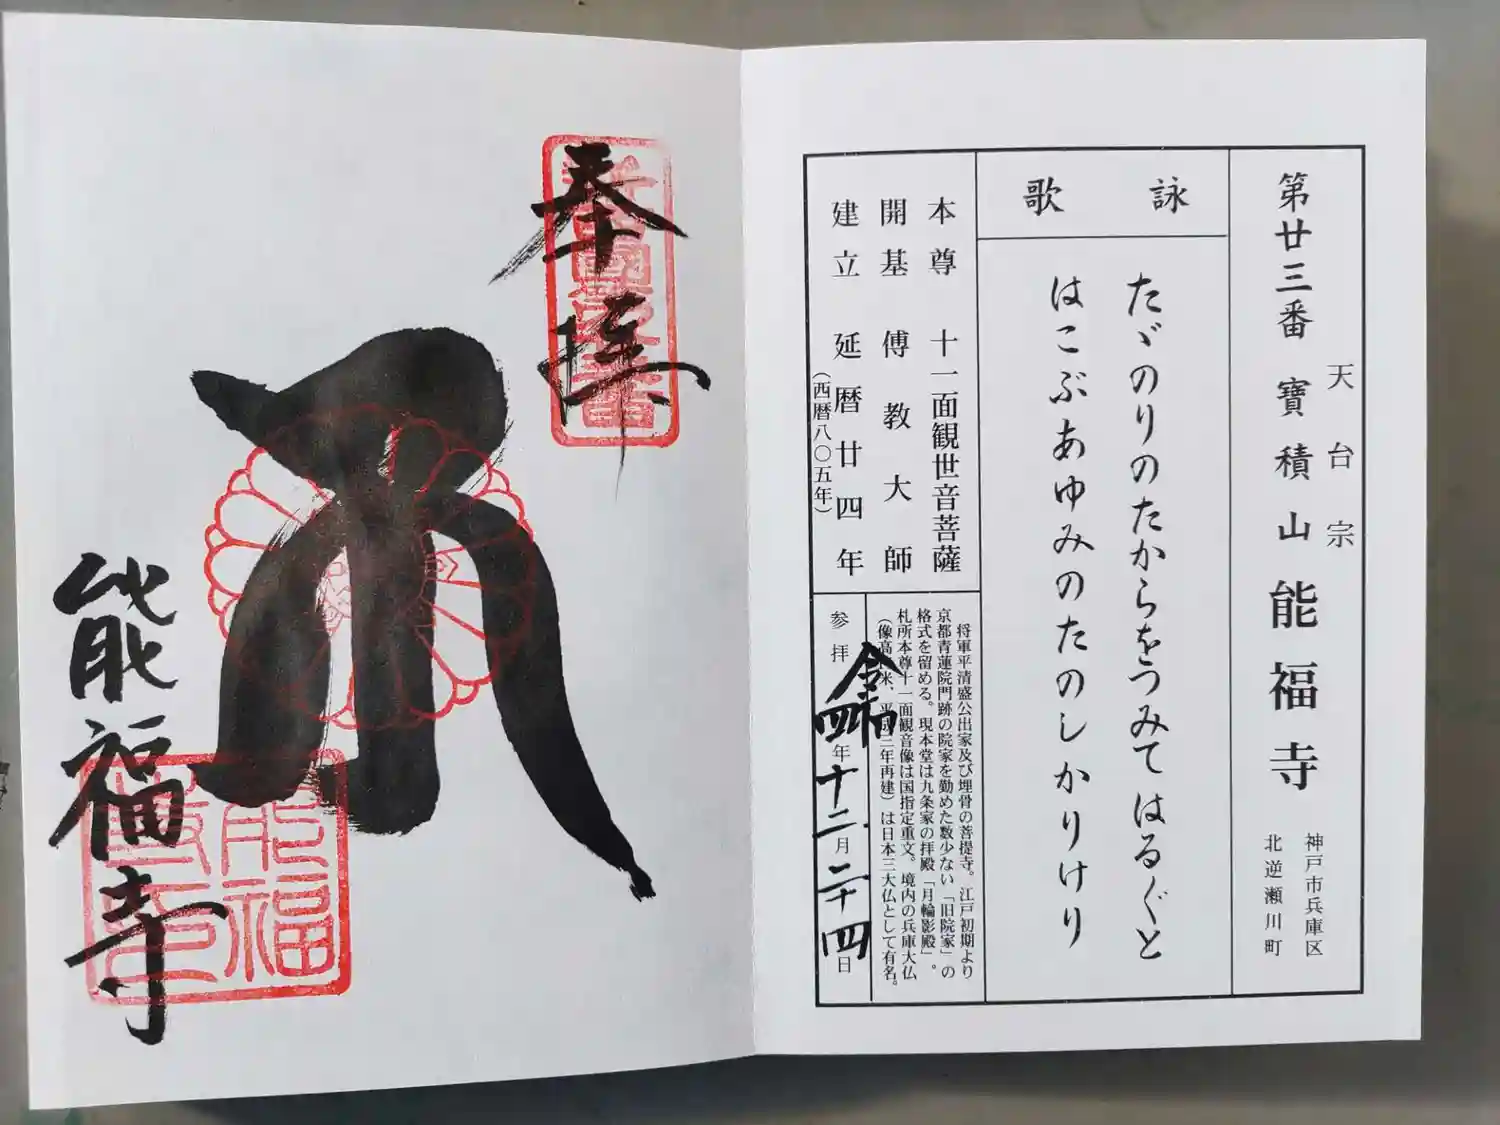 第廿三番 寶積山 能福寺
天台宗
神戸市兵庫区
北逆瀬川町
詠歌
たゞのりのたからをつみてはるぐと
はこぶあゆみのたのしかりけり
本尊 十一面観世音菩薩
開基 傳教大師
建立 延暦廿四年
(西暦八〇五年)
将軍平清盛公出家及び埋骨の菩提寺。江戸初期より
京都青蓮院門跡の院家を勤めた数少ない「旧院家」の
格式を留める。現本堂は九条家の拝殿「月輪影殿」。
札所本尊十一面観音像は国指定重文。境内の兵庫大仏
(像高 米、平成三年再建)は日本三大仏として有名。
参拝 令和四年十二月二十四日
奉拝
能福寺
能福